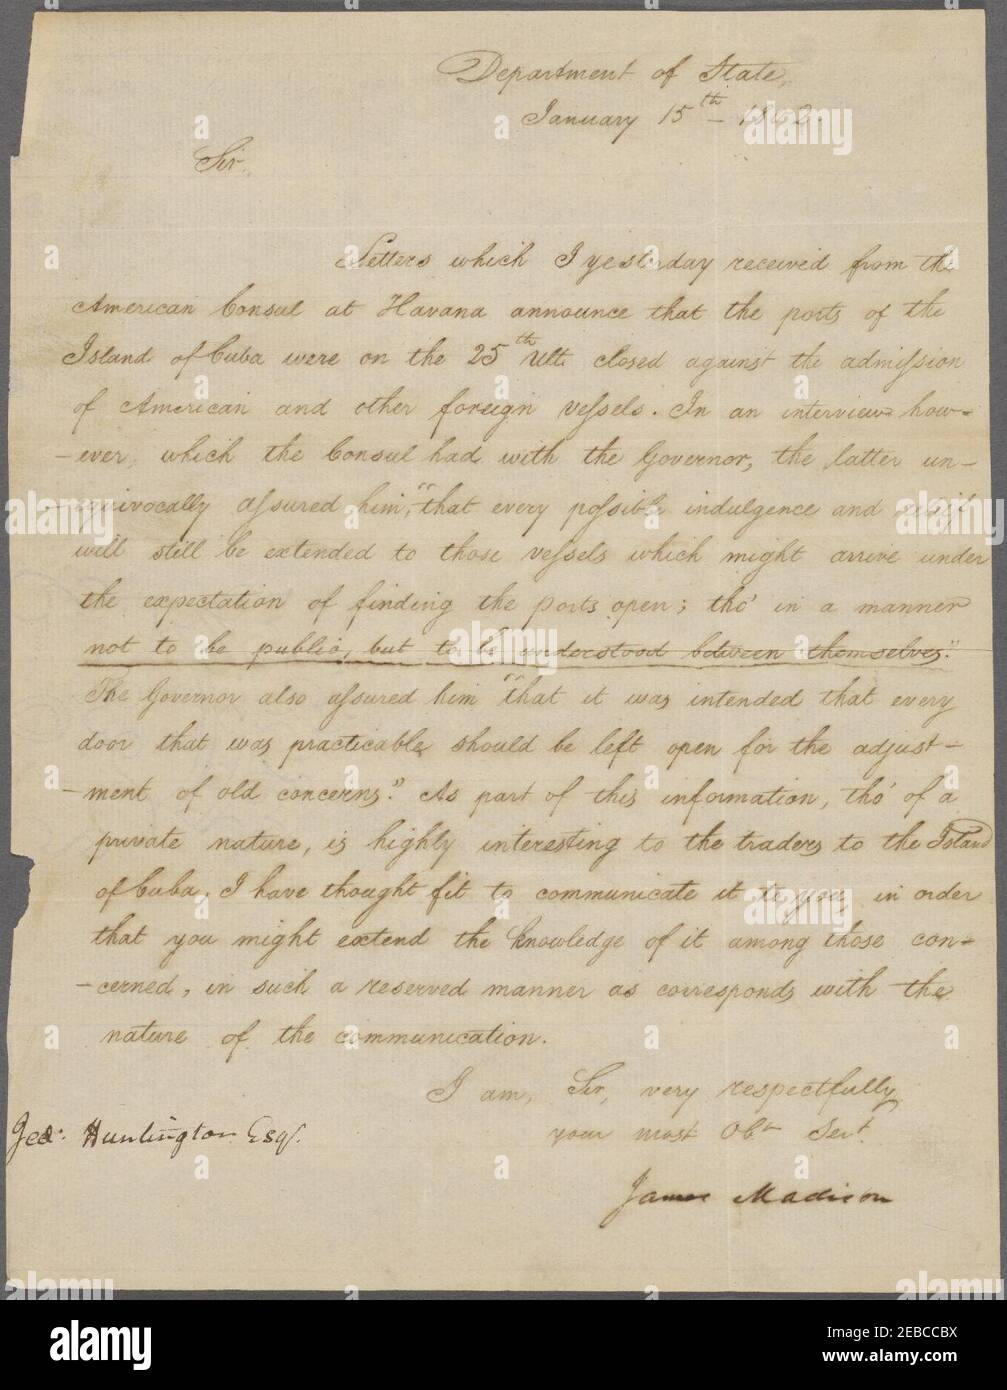 Department of State,
January 15th - 1802.
Sir,
Letters which I yesterday received from the
American Consul at Havana announce that the ports of the
Island of Cuba were on the 25th Ult. closed against the admission
of American and other foreign vessels. In an interview how-
-ever, which the Consul had with the Governor, the latter un-
-equivocally assured him, "that every possible indulgence and relief
will still be extended to those vessels which might arrive under
the expectation of finding the ports open; tho' in a manner
not to be public, but to be understood between themselves."
The Governor also assured him "that it was intended that every
door that was practicable should be left open for the adjust-
-ment of old concerns." As part of this information, tho' of a
private nature, is highly interesting to the traders to the Island
of Cuba, I have thought fit to communicate it to you, in order
that you might extend the knowledge of it among those con-
-cerned, in such a reserved manner as corresponds with the
nature of the communication.
I am, Sir, very respectfully
your most Obt. Servt.
Geo. Huntington Esqr.
James Madison
alamy
Image ID: 2EBCCBX
www.alamy.com